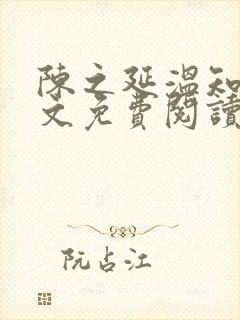 陳之延溫知
文免費閱讀
阮占江